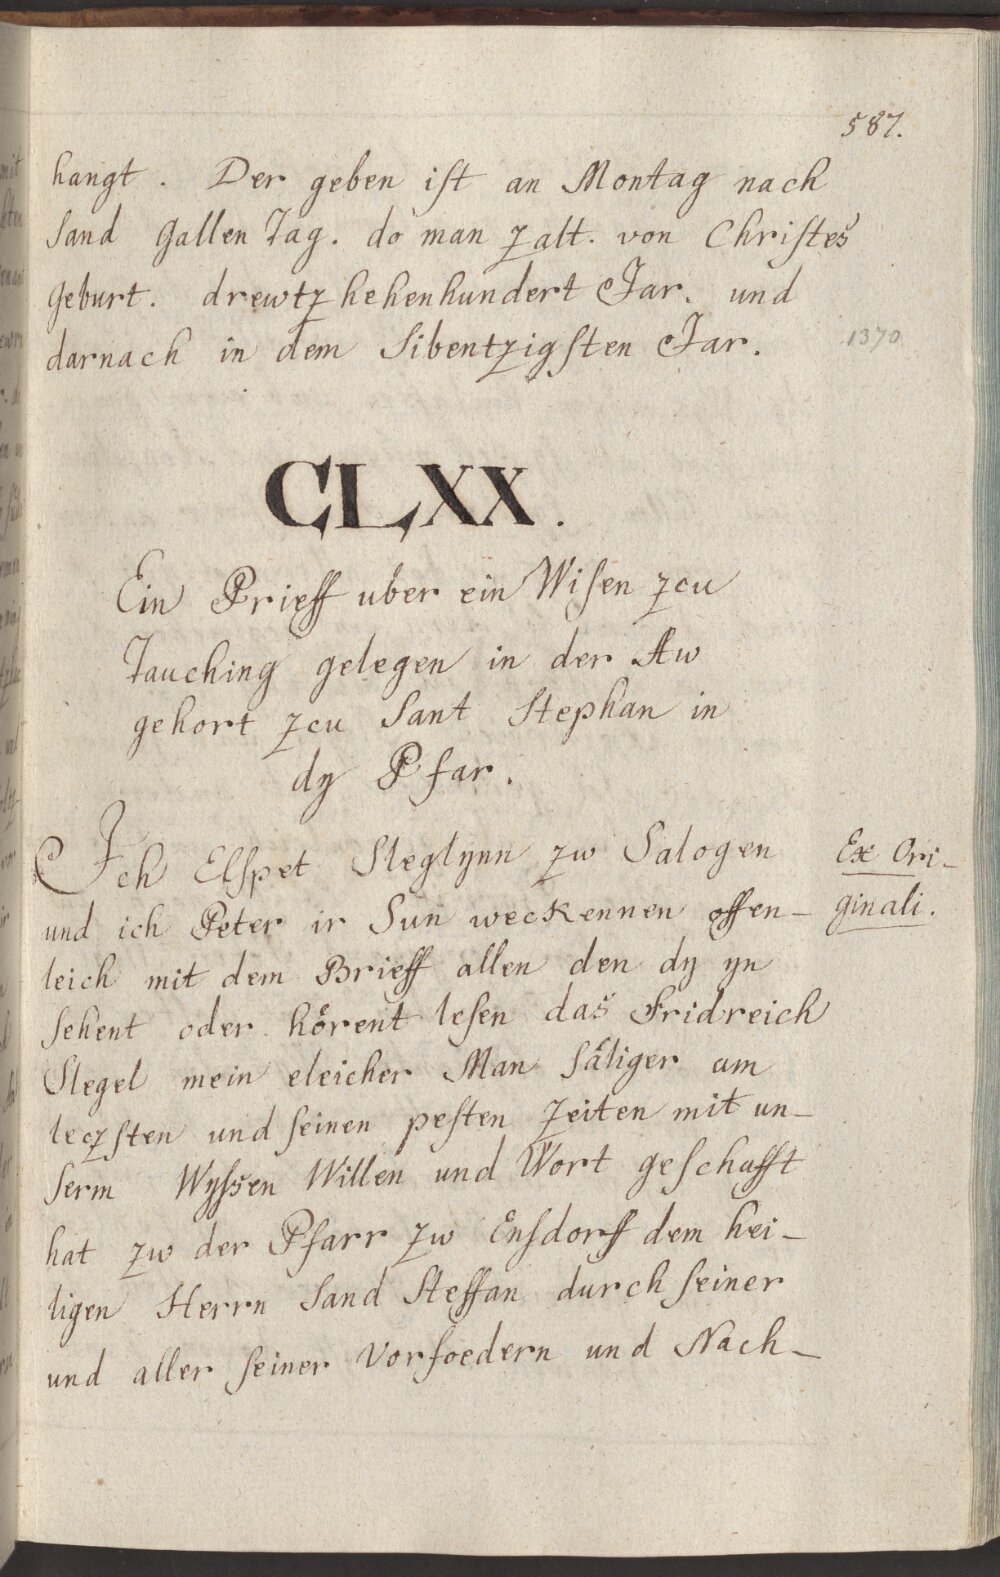 587.
hangt. Der geben ist an Montag nach
Sand Gallen Tag. do man zalt. von Christes
geburt. drewtzhehenhundert Jar. und
darnach in dem Sibentzigsten Jar.
1370
CLXX.
Ein Prieff uber ein Wisen zcu
Tauching gelegen in der Aw
gehort zcu Sant Stephan in
dy Pfar.
Ich Elspet Sleglynn zw Salogen
Ex Ori-
und ich Peter ir Sun weckennen offen-
ginali.
leich mit dem Brieff allen den dy yn
sehent oder hörent lesen das Fridreich
Slegel mein eleicher Man säliger am
leczsten und seinen pesten Zeiten mit un-
serm Wyssen Willen und Wort geschafft
hat zw der Pfarr zw Ensdorff dem hei-
ligen Herrn Sand Steffan durch seiner
und aller seiner Vorfoedern und Nach-